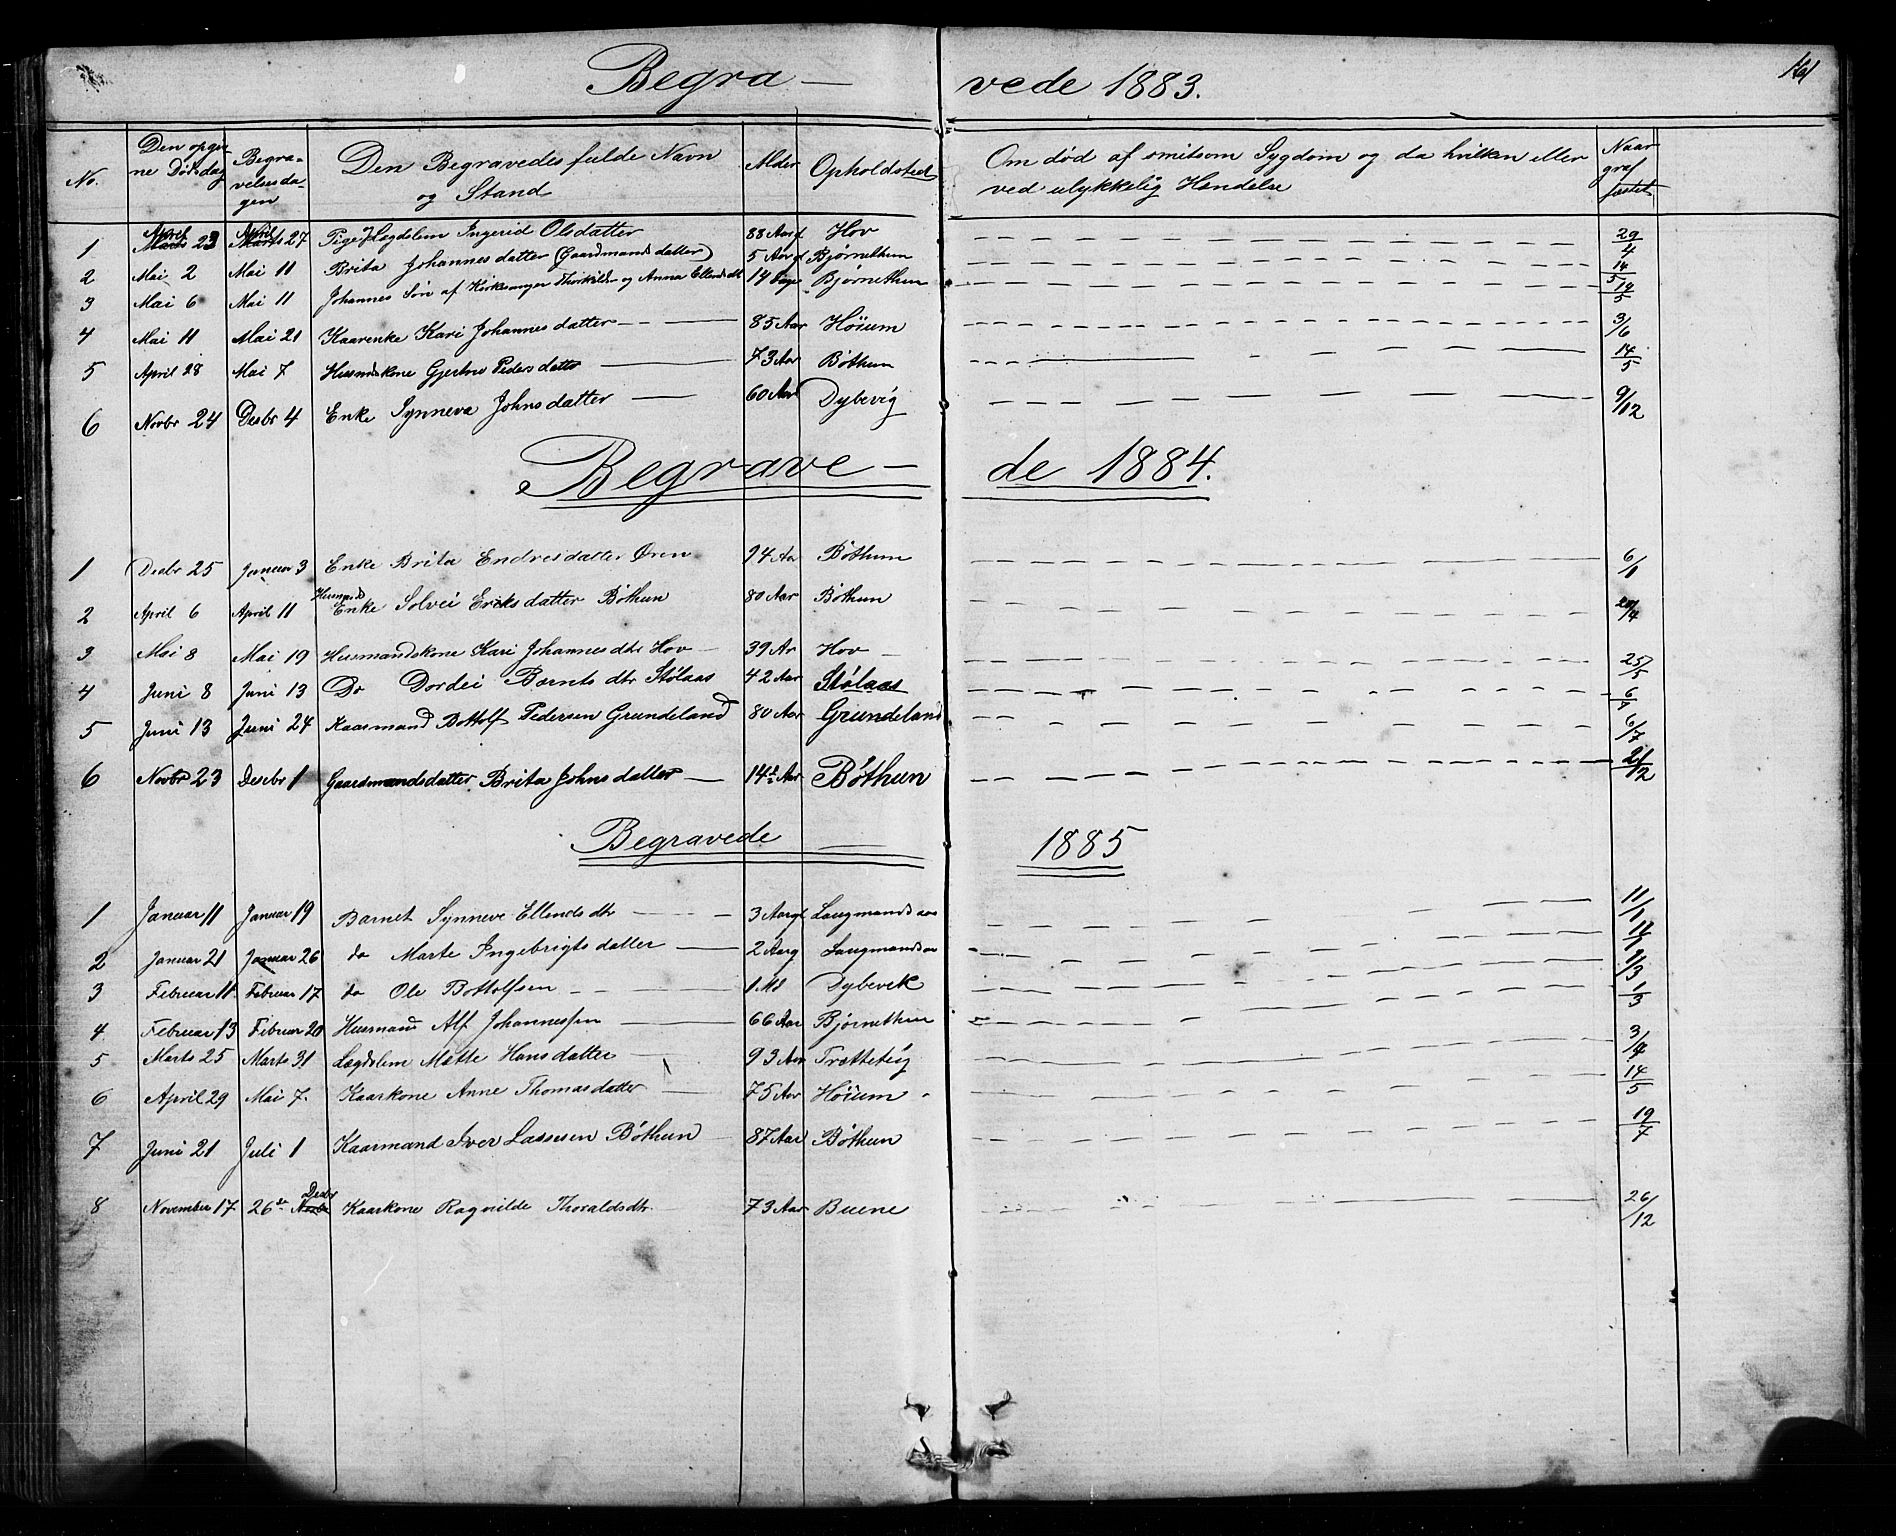 Begra — vede 1883.
161
No. | Den opgivne Dödsdag | Begravelsesdagen | Den Begravedes fulde Navn og Stand | Alder | Opholdsted | Om död af smitsom Sygdom og da hvilken eller ved ulykkelig Hændelse | Naar graf fæstet
1 | April 23 | April 27 | Pige Lægdslem Ingerid Olsdatter | 88 Aar gl | Hov | 29/4
2 | Mai 2 | Mai 11 | Brita Johannesdatter (Gaardmandsdatter) | 5 Aar gl | Björnethun | 14/5
3 | Mai 6 | Mai 11 | Johannes Sön af Kirksanger Thorkild og Anna Ellensdtr | 14 Dage | Björnethun | 14/5
4 | Mai 11 | Mai 21 | Kaarenke Kari Johannesdatter | 85 Aar | Höium | 3/6
5 | April 28 | Mai 7 | Husmdskone Gjertrue Pedersdatter | 73 Aar | Böthun | 14/5
6 | Novbr 24 | Desbr 4 | Enke Synneva Johnsdatter | 60 Aar | Dybevig | 9/12
Begrave — de 1884.
1 | Desbr 25 | Januar 3 | Enke Brita Endresdatter Ören | 94 Aar | Böthun | 6/1
2 | April 6 | April 11 | Husmands Enke Solvei Eriksdatter Böthun | 80 Aar | Böthun | 20/4
3 | Mai 8 | Mai 19 | Husmandskone Kari Johannesdtr Hov | 39 Ar | Hov | 25/5
4 | Juni 8 | Juni 13 | Do Dordei Berntsdtr Stölaas | 42 Aar | Stölaas | 6/7
5 | Juni 13 | Juni 24 | Kaarmand Bottolf Pedersen Grundeland | 80 Aar | Grundeland | 6/7
6 | Novbr 23 | Desbr 1 | Gaardmandsdatter Brita Johnsdatter | 14½ Aar | Böthun | 21/12
Begravede — 1885
1 | Januar 11 | Januar 19 | Barnet Synneve Ellendsdtr | 3 Aar gl | Laugmandsaas | 11/1
2 | Januar 21 | Januar 26 | do Marte Ingebrigtsdatter | 2 Aar g | Laugmandsaa
3 | Februar 11 | Februar 17 | do Ole Bottolfsen | 1 Md | Dybevek | 1/3
4 | Februar 13 | Februar 20 | Husmand Alf Johannessen | 66 Aar | Björnethun | 1/3
5 | Marts 25 | Marts 31 | Lægdslem Mette Hansdatter | 93 Aar | Trætteteig | 3/4
6 | April 29 | Mai 7. | Kaarkone Anne Thomasdatter | 75 Aar | Höium | 14/5
7 | Juni 21 | Juli 1 | Kaarmand Iver Lassesen Böthun | 87 Aar | Böthun | 19/7
8 | November 17 | 26de Desbr | Kaarkone Ragnilde Thoraldsdtr. | 73 Aar | Buene | 26/12